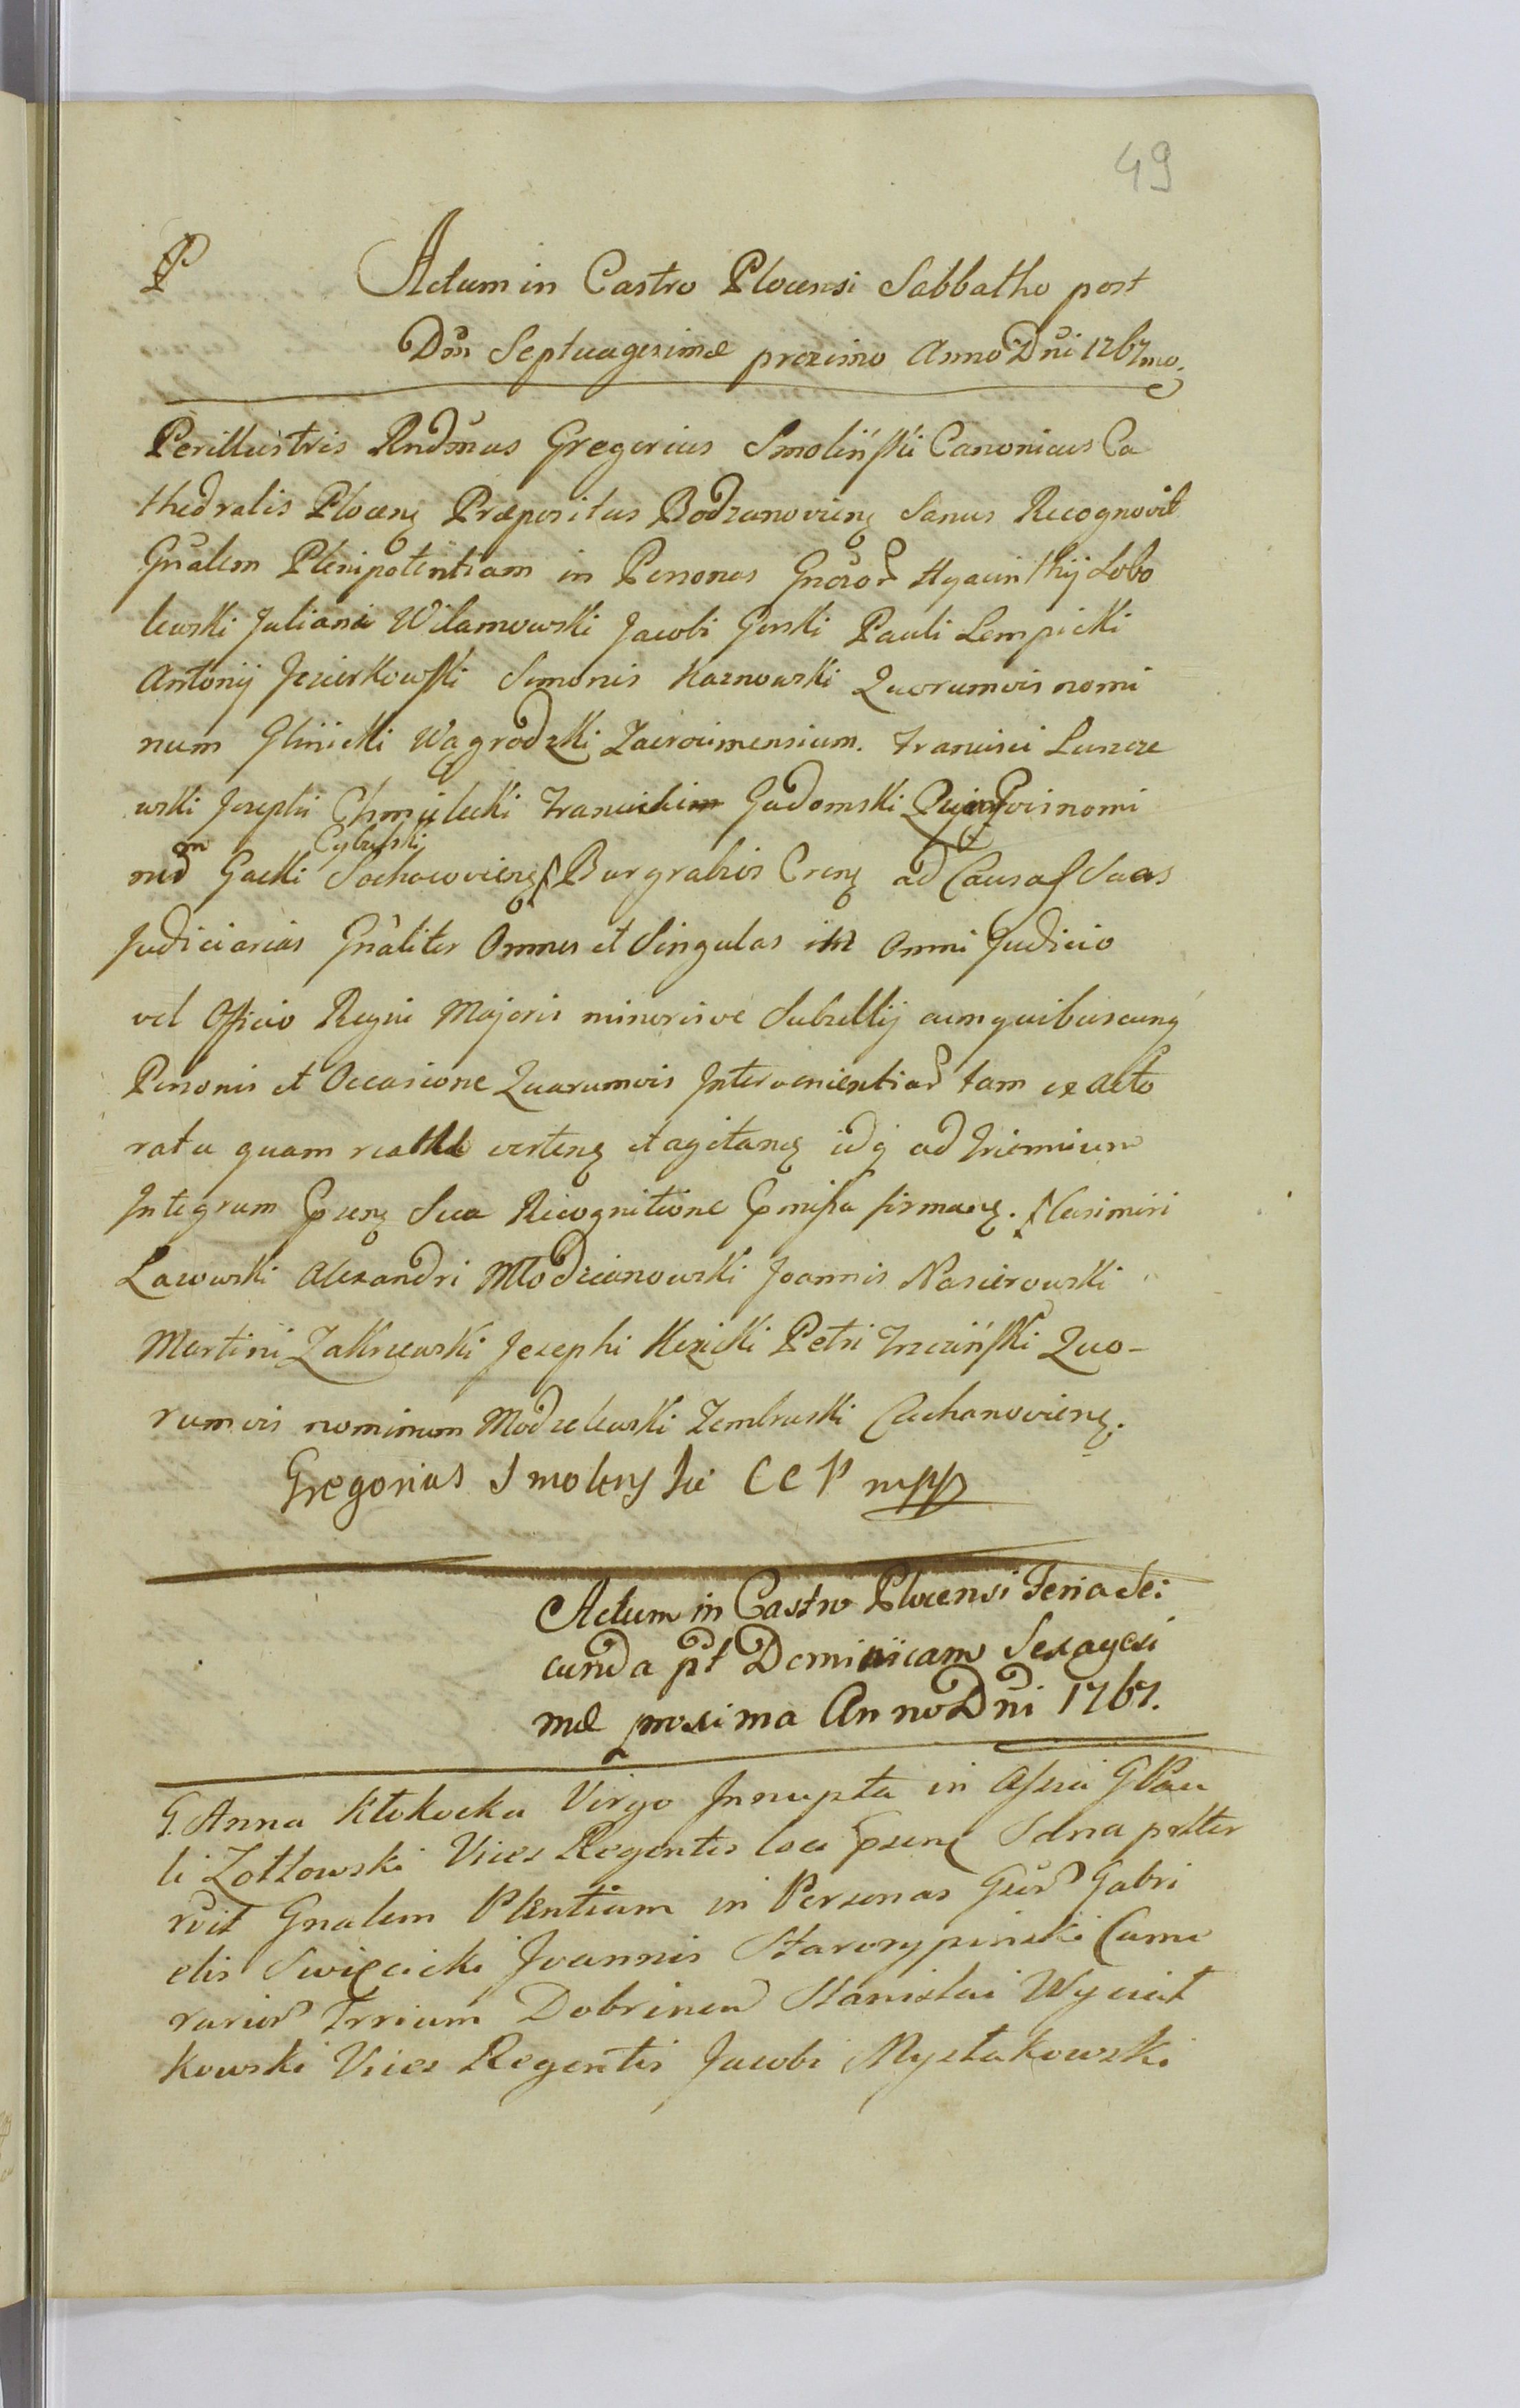 49
P Actum in Castro Plocensi Sabbatho post
Dm̃ Septuagesimæ proximo Anno Dñi 1767mo.
Perillustris Rndm̃us Gregorius Smolińſki Canonicus Ca
thedralis Plocens Præpositus Bodzanoviens Sanus Recognovit
Gñalem Plenipotentiam in Personas Gnõror Hyacinthij Lobo
lewski Juliani Wilamowski Jacobi Gorski Pauli Lempicki
Antonij Jezierkowſki Simonis Kaznowski Quorumvis nomi
num Glinicki Wągrodzki Zacrocimensium. Francisci Luszcze
wski Josephi Chmielecki Francisci Gadomski nomi
num Gacki Cybulski Sochacoviens Burgrabios Crens ad Causas Suas
Judiciarias Gñaliter Omnes et Singulas in Omni Judicio
vel Officio Regni Majoris minorisve Subsellij cumquibuscunq
Personis et Occasione Quarumvis Intervenientiar tam ex Acto
ratu quam reatu vertens et agitans idq ad Triennium
Integrum Prens Sua Recognitione Pmissa firmans. Casimiri
Lasowski Alexandri Młodzianowski Joannis Nasierowski
Martini Zakrzewski Josephi Kezicki Petri Trzcińſki Quo-
rumvis nominum Modzelewski Zembrzuski Ciechanoviens.
Gregorius Smolinski CCP mpp
Actum in Castro Plocensi Feria Se:
cunda pt Dominicam Sexagesi
mæ proxima Anno Dñi 1767.
G. Anna Kłokocka Virgo Innupta in Assũ G Pau
li Zołtowski Vices Regentis loci prens
rdit Gnalem Plentiam in Personas Gñr Gabri
elis Swięcicki Joannis Starorypinski Came
rarior Trrium Dobrinen Stanislai Wyciat
kowski Vices Regentis Jacobi Mystakowski